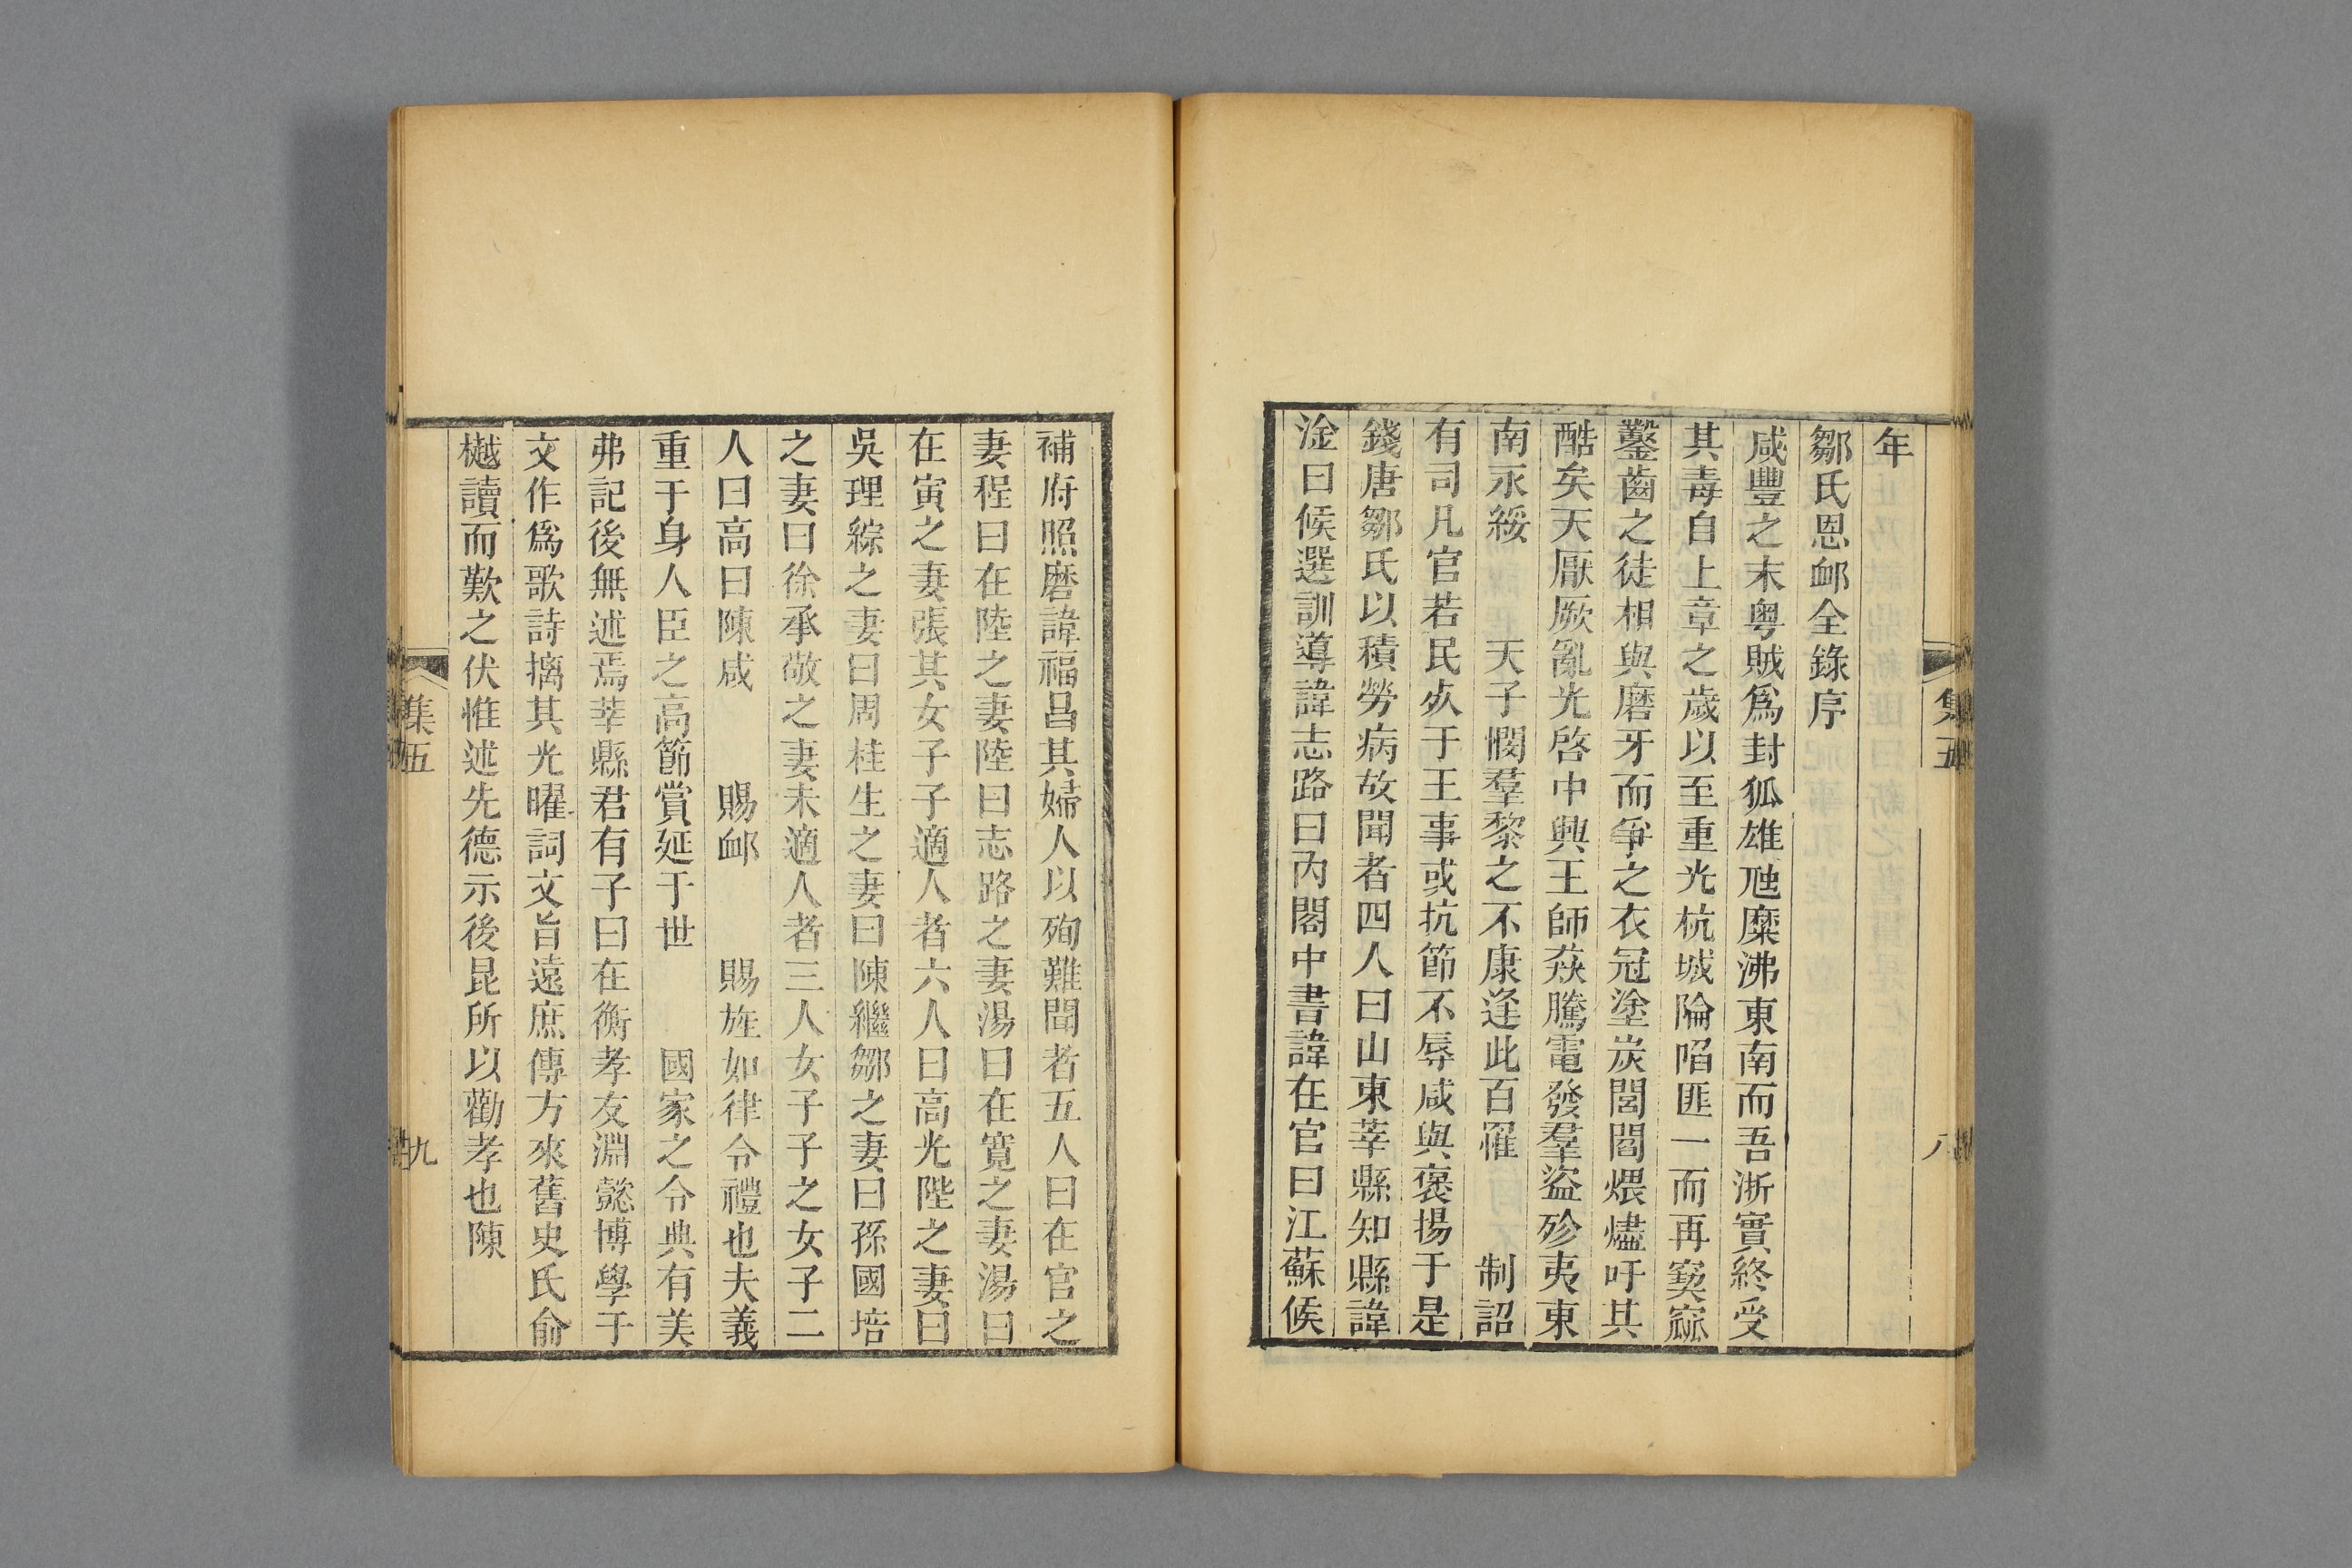 年
鄒氏恩卹全錄序
咸豐之末粵賊爲封狐雄虺麋沸東南而吾浙實終受
其毒自上章之歲以至重光杭城陯陷匪一而再窫窳
鑿齒之徒相與磨牙而爭之衣冠塗炭閭閻煨燼吁其
酷矣天厭厥亂光啓中興王師猋騰電發羣盜殄夷東
南永綏 天子憫羣黎之不康逢此百罹 制詔
有司凡官若民歺于王事或抗節不辱咸與褒揚于是
錢唐鄒氏以積勞病故聞者四人曰山東莘縣知縣諱
淦曰候選訓導諱志路曰內閣中書諱在官曰江蘇候
補府照磨諱福昌其婦人以殉難聞者五人曰在官之
妻程曰在陸之妻陸曰志路之妻湯曰在寬之妻湯曰
在寅之妻張其女子子適人者六人曰高光陛之妻曰
吳理綜之妻曰周桂生之妻曰陳繼鄒之妻曰孫國培
之妻曰徐承敬之妻未適人者三人女子子之女子二
人曰高曰陳咸 賜卹 賜旌如律令禮也夫義
重于身人臣之高節賞延于世 國家之令典有美
弗記後無述焉莘縣君有子曰在衡孝友淵懿博學于
文作爲歌詩摛其光曜詞文旨遠庶傳方來舊史氏俞
樾讀而歎之伏惟述先德示後昆所以勸孝也陳
集五
八
集五
九